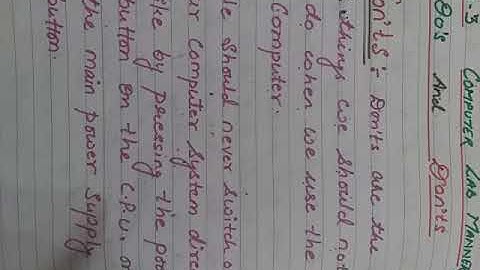 -3 COMPUTER LAB MANNE
Do's And Don'ts
on'ts:- Don'ts are the
things we should not
do when we use the
Computer.
le should never switch o
ur Computer system direc
ike by pressing the pow
button on the C.P.U. or
the main power supply
button.